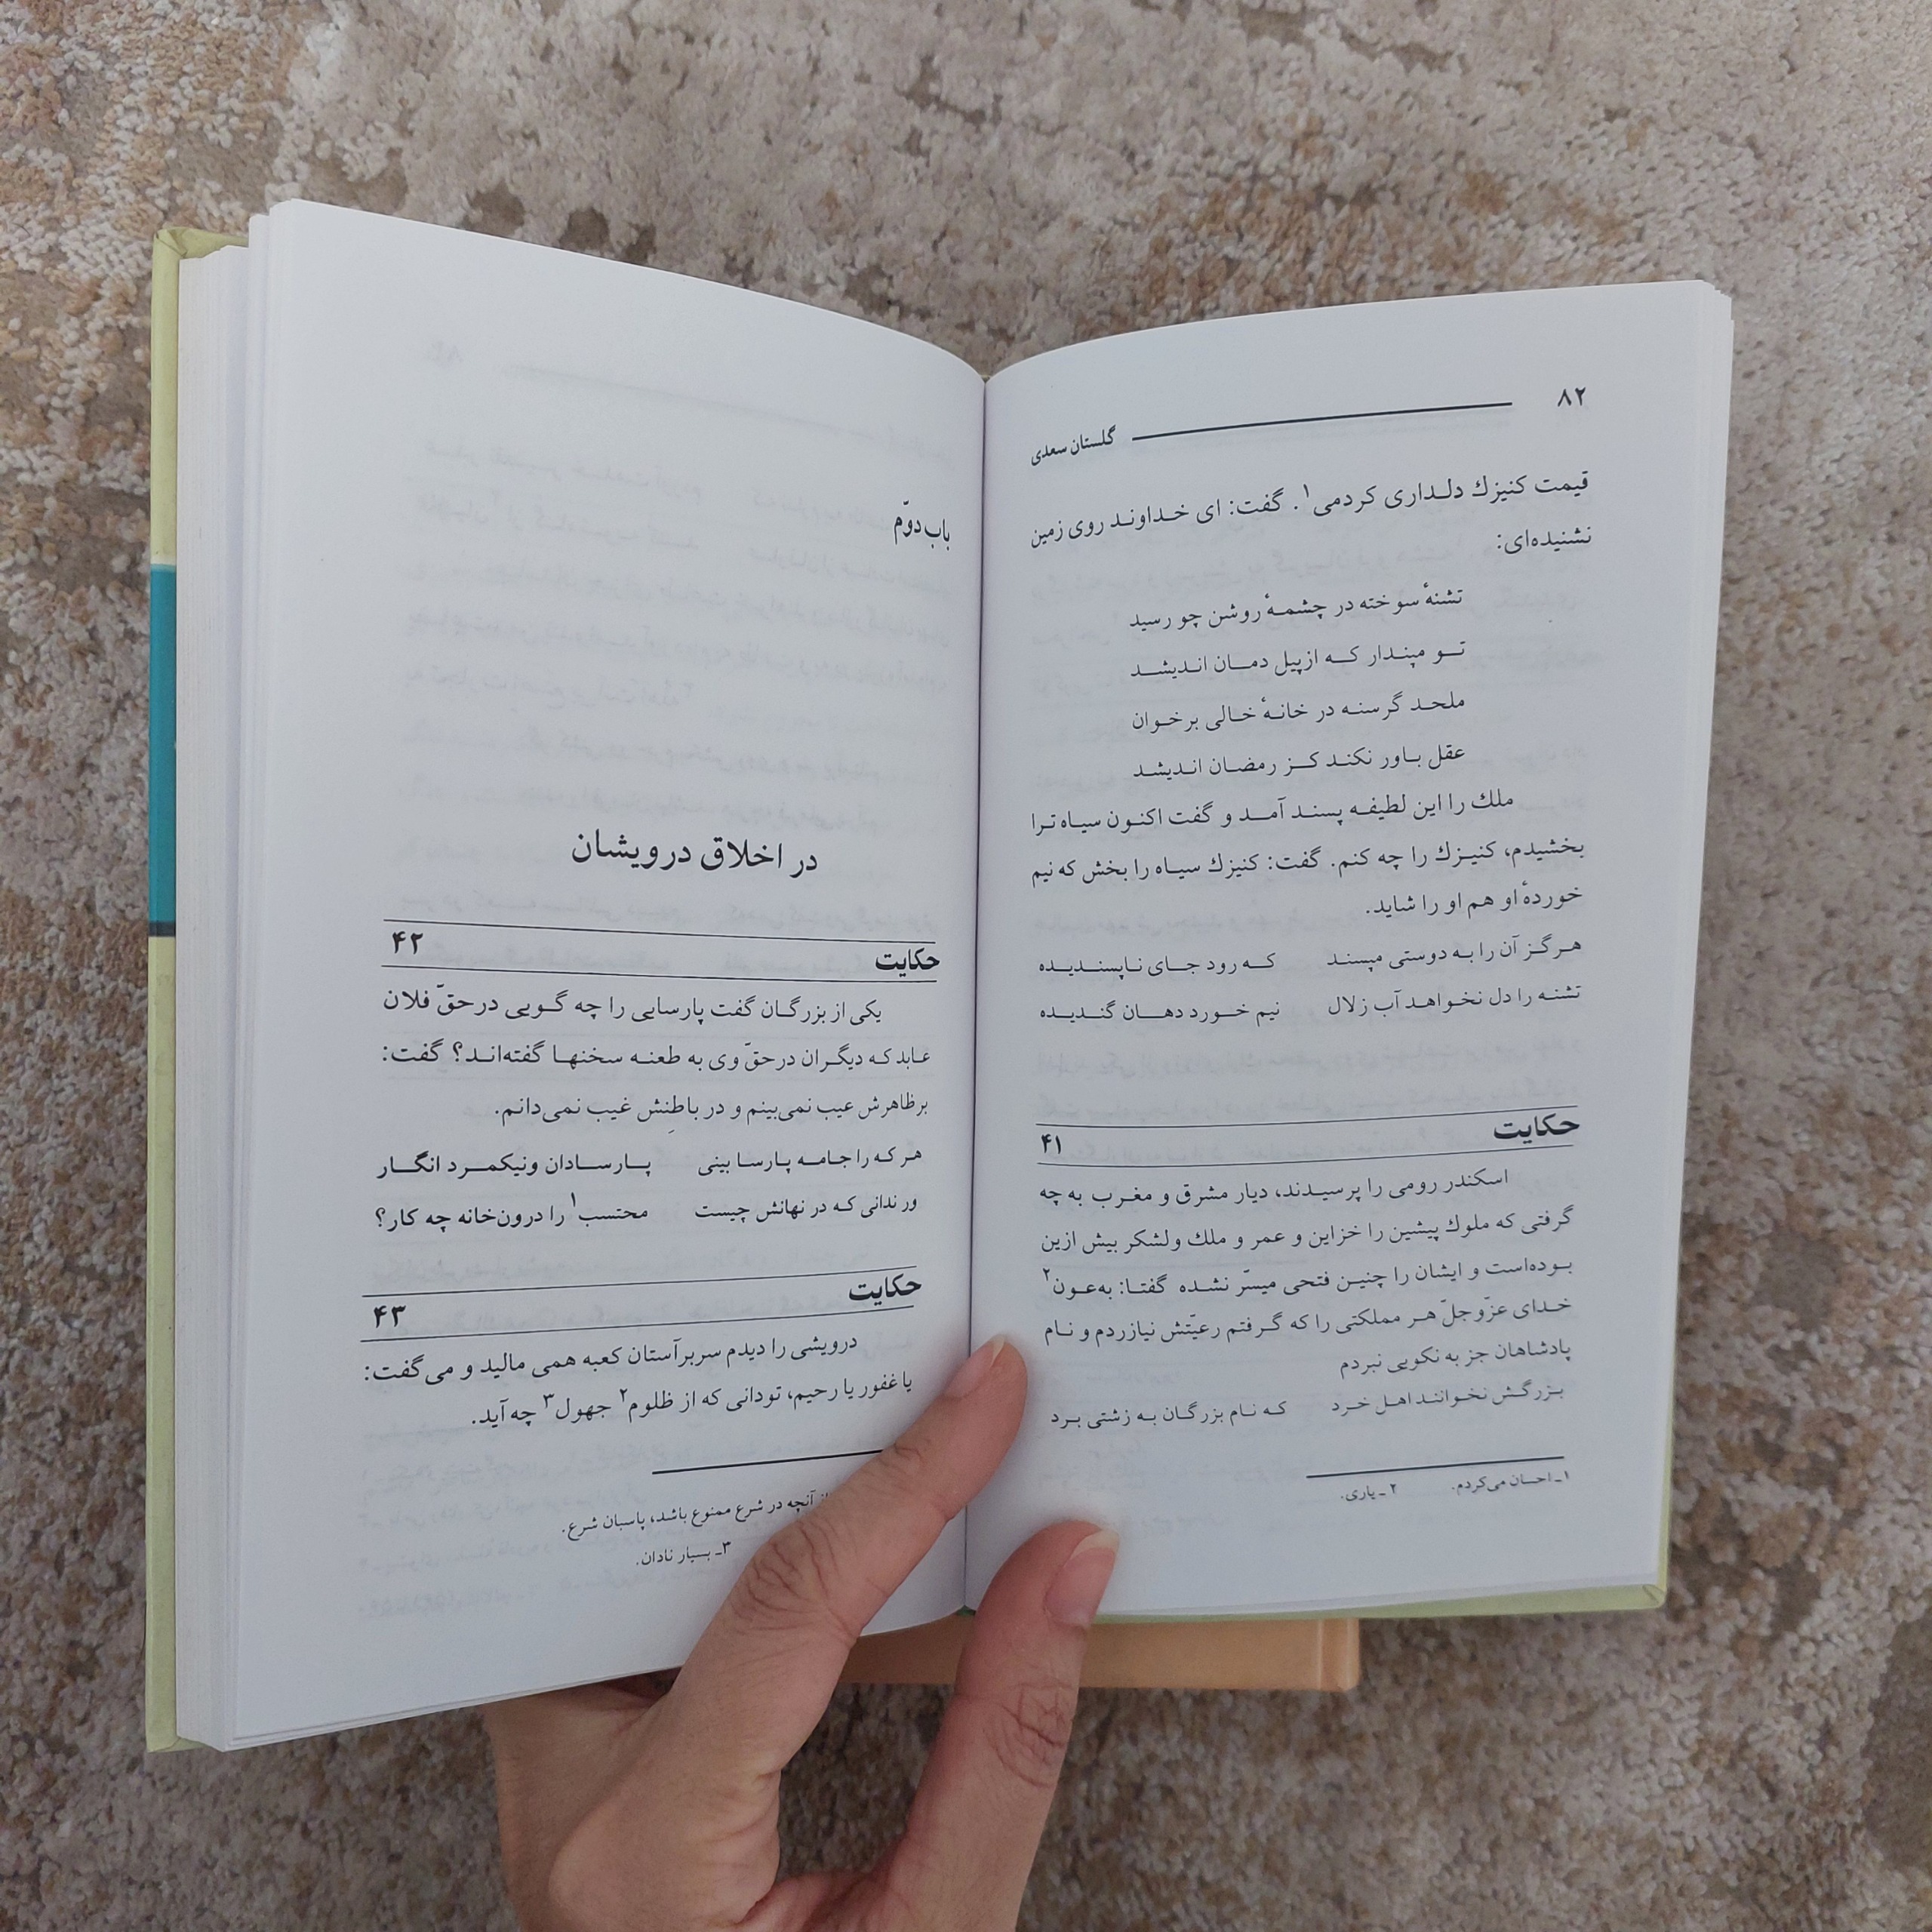 ۸۲
گلستان سعدی
قیمت کنیزك دلـداری کردمی۱. گفت: ای خـداونـد روی زمین
نشنیده‌ای:
تشنهٔ سوخته در چشمـهٔ روشن چو رسید
تـو مپنـدار کـه ازپیل دمـان انـدیشـد
ملحـد گرسنـه در خانـهٔ خـالی برخـوان
عقل بـاور نکنـد کـز رمضـان انـدیشـد
ملك را این لطیفـه پسنـد آمـد و گفت اکنـون سیـاه تـرا
بخشیدم، کنیـزك را چه کنم. گفت: کنیزك سیـاه را بخش که نیم
خوردهٔ او هم او را شاید.
هـرگـز آن را بـه دوستی مپسنـد کـه رود جـای نـاپسنـدیـده
تشنـه را دل نخـواهـد آب زلال نیم خـورد دهـان گنـدیـده
حکایت ۴۱
اسکندر رومی را پرسیـدند، دیار مشرق و مغـرب به چه
گرفتی که ملوك پیشین را خزاین و عمر و ملك ولشکر بیش ازین
بـوده‌است و ایشان را چنیـن فتحی میسّر نشده گفتـا: به‌عـون۲
خـدای عزّوجلّ هـر مملکتی را که گـرفتم رعیّتش نیازردم و نـام
پادشاهان جز به نکویی نبردم
بـزرگـش نخـواننـد اهـل خـرد کـه نـام بزرگـان بـه زشتی بـرد
۱ـ احسان می‌کردم. ۲ ـ یاری.
باب دوّم
در اخلاق درویشان
حکایت ۴۲
یکی از بزرگـان گفت پارسایی را چه گـویی درحقّ فلان
عـابد کـه دیگـران درحقّ وی به طعنـه سخنهـا گفته‌انـد؟ گفت:
برظاهرش عیب نمی‌بینم و در باطِنش غیب نمی‌دانم.
هـر کـه را جـامـه پـارسـا بینی پـارسـادان ونیکمـرد انگـار
ور ندانی کـه در نهانش چیست محتسب۱ را درون‌خانه چه کار؟
حکایت ۴۳
درویشی را دیدم سربرآستان کعبه همی مالید و می‌گفت:
یا غفور یا رحیم، تودانی که از ظلوم۲ جهول۳ چه آید.
از آنچه در شرع ممنوع باشد، پاسبان شرع.
۳ـ بسیار نادان.